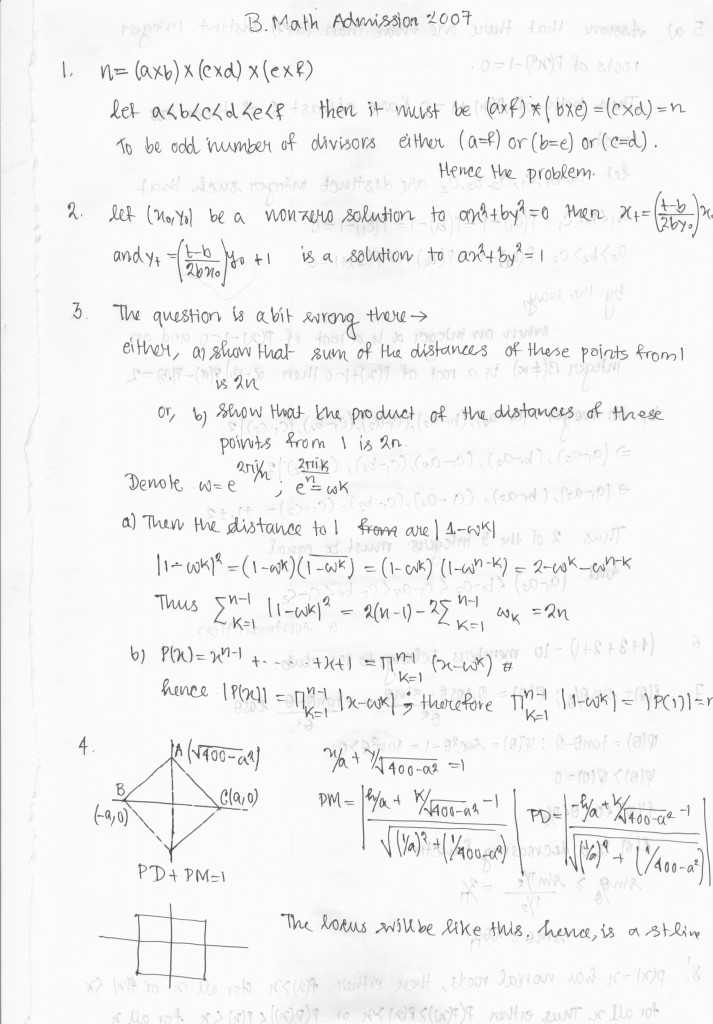 B. Math Admission 2007
1. n = (a×b) × (c×d) × (e×f)
let a<b<c<d<e<f then it must be (a×f) * (b×e) = (c×d) = n
To be odd number of divisors either (a=f) or (b=e) or (c=d).
Hence the problem.
2. let (x₀, y₀) be a nonzero solution to ax²+by²=0 then x_t = ((t-b)/(2by₀)) x₀
and y_t = ((t-b)/(2bx₀)) y₀ + 1 is a solution to ax²+by²=1
3. The question is a bit wrong there →
either, a) show that sum of the distances of these points from 1
is 2n
or, b) show that the product of the distances of these
points from 1 is 2n.
Denote ω = e^(2πi/n) ; e^(2πik/n) = ωk
a) Then the distance to 1 from are |1-ωk|
|1-ωk|² = (1-ωk)(1-ωk) = (1-ωk)(1-ω^(n-k)) = 2-ωk-ω^(n-k)
Thus Σ_(k=1)^(n-1) |1-ωk|² = 2(n-1) - 2Σ_(k=1)^(n-1) ωk = 2n
b) P(x) = x^(n-1) + ... + x+1 = Π_(k=1)^(n-1) (x-ω^k)
hence |P(x)| = Π_(k=1)^(n-1) |x-ωk| ; therefore Π_(k=1)^(n-1) |1-ωk| = |P(1)| = n
4. A (√400-a²)
B
(-a,0)
C(a,0)
x/a + y/√400-a² = 1
PM = | (h/a + k/√400-a² - 1) / √((1/a)² + (1/400-a²)) |
PD = | (-h/a + k/√400-a² - 1) / √((1/a)² + (1/400-a²)) |
PD + PM = 1
The locus will be like this, hence, is a st line